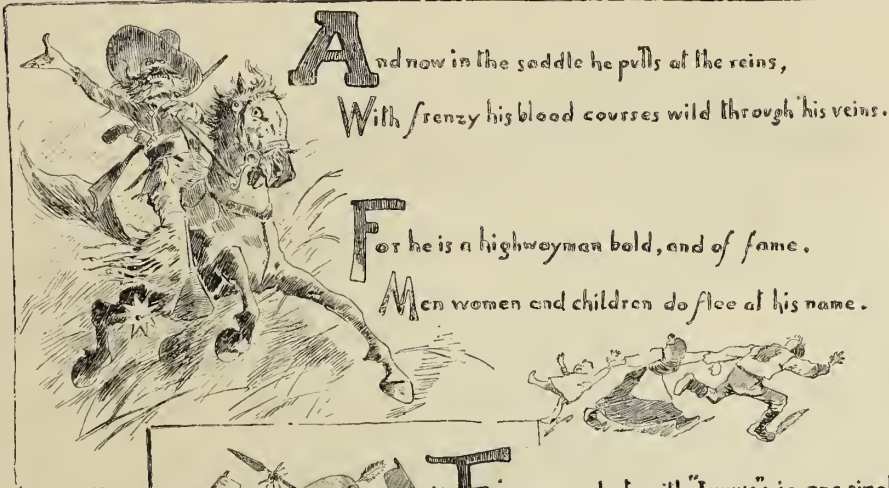 And now in the saddle he pulls at the reins,
With frenzy his blood courses wild through his veins.
For he is a highwayman bold, and of fame.
Men women and children do flee at his name.